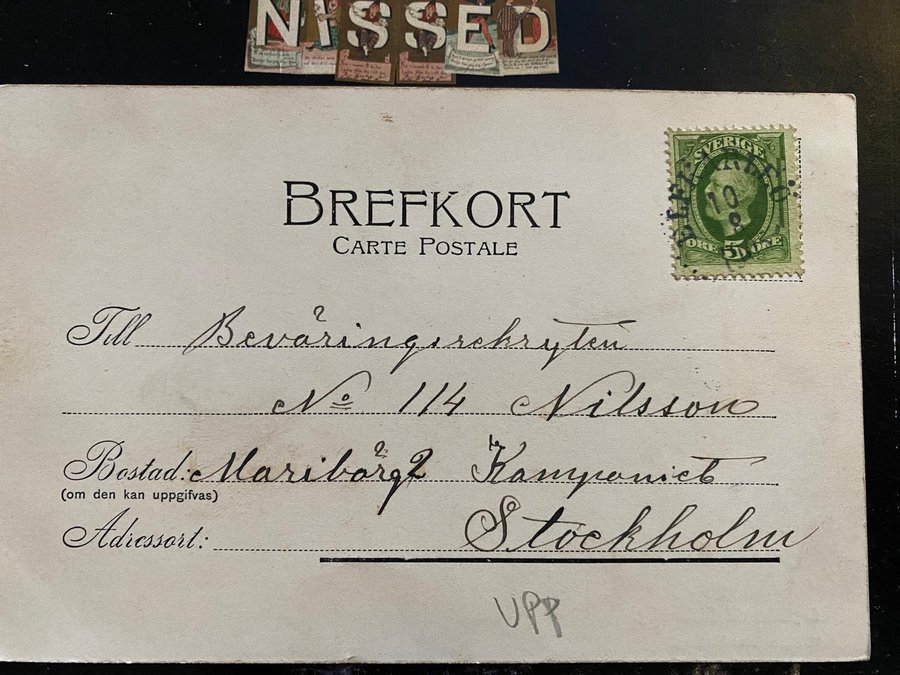 NISSED
BREFKORT
CARTE POSTALE
SVERIGE
10
8
ÖRE 5 ÖRE
Till Beväringsrekryten
No 114 Nilsson
Bostad: Mariborg 2 Kompaniet
(om den kan uppgifvas)
Adressort: Stockholm
UPP